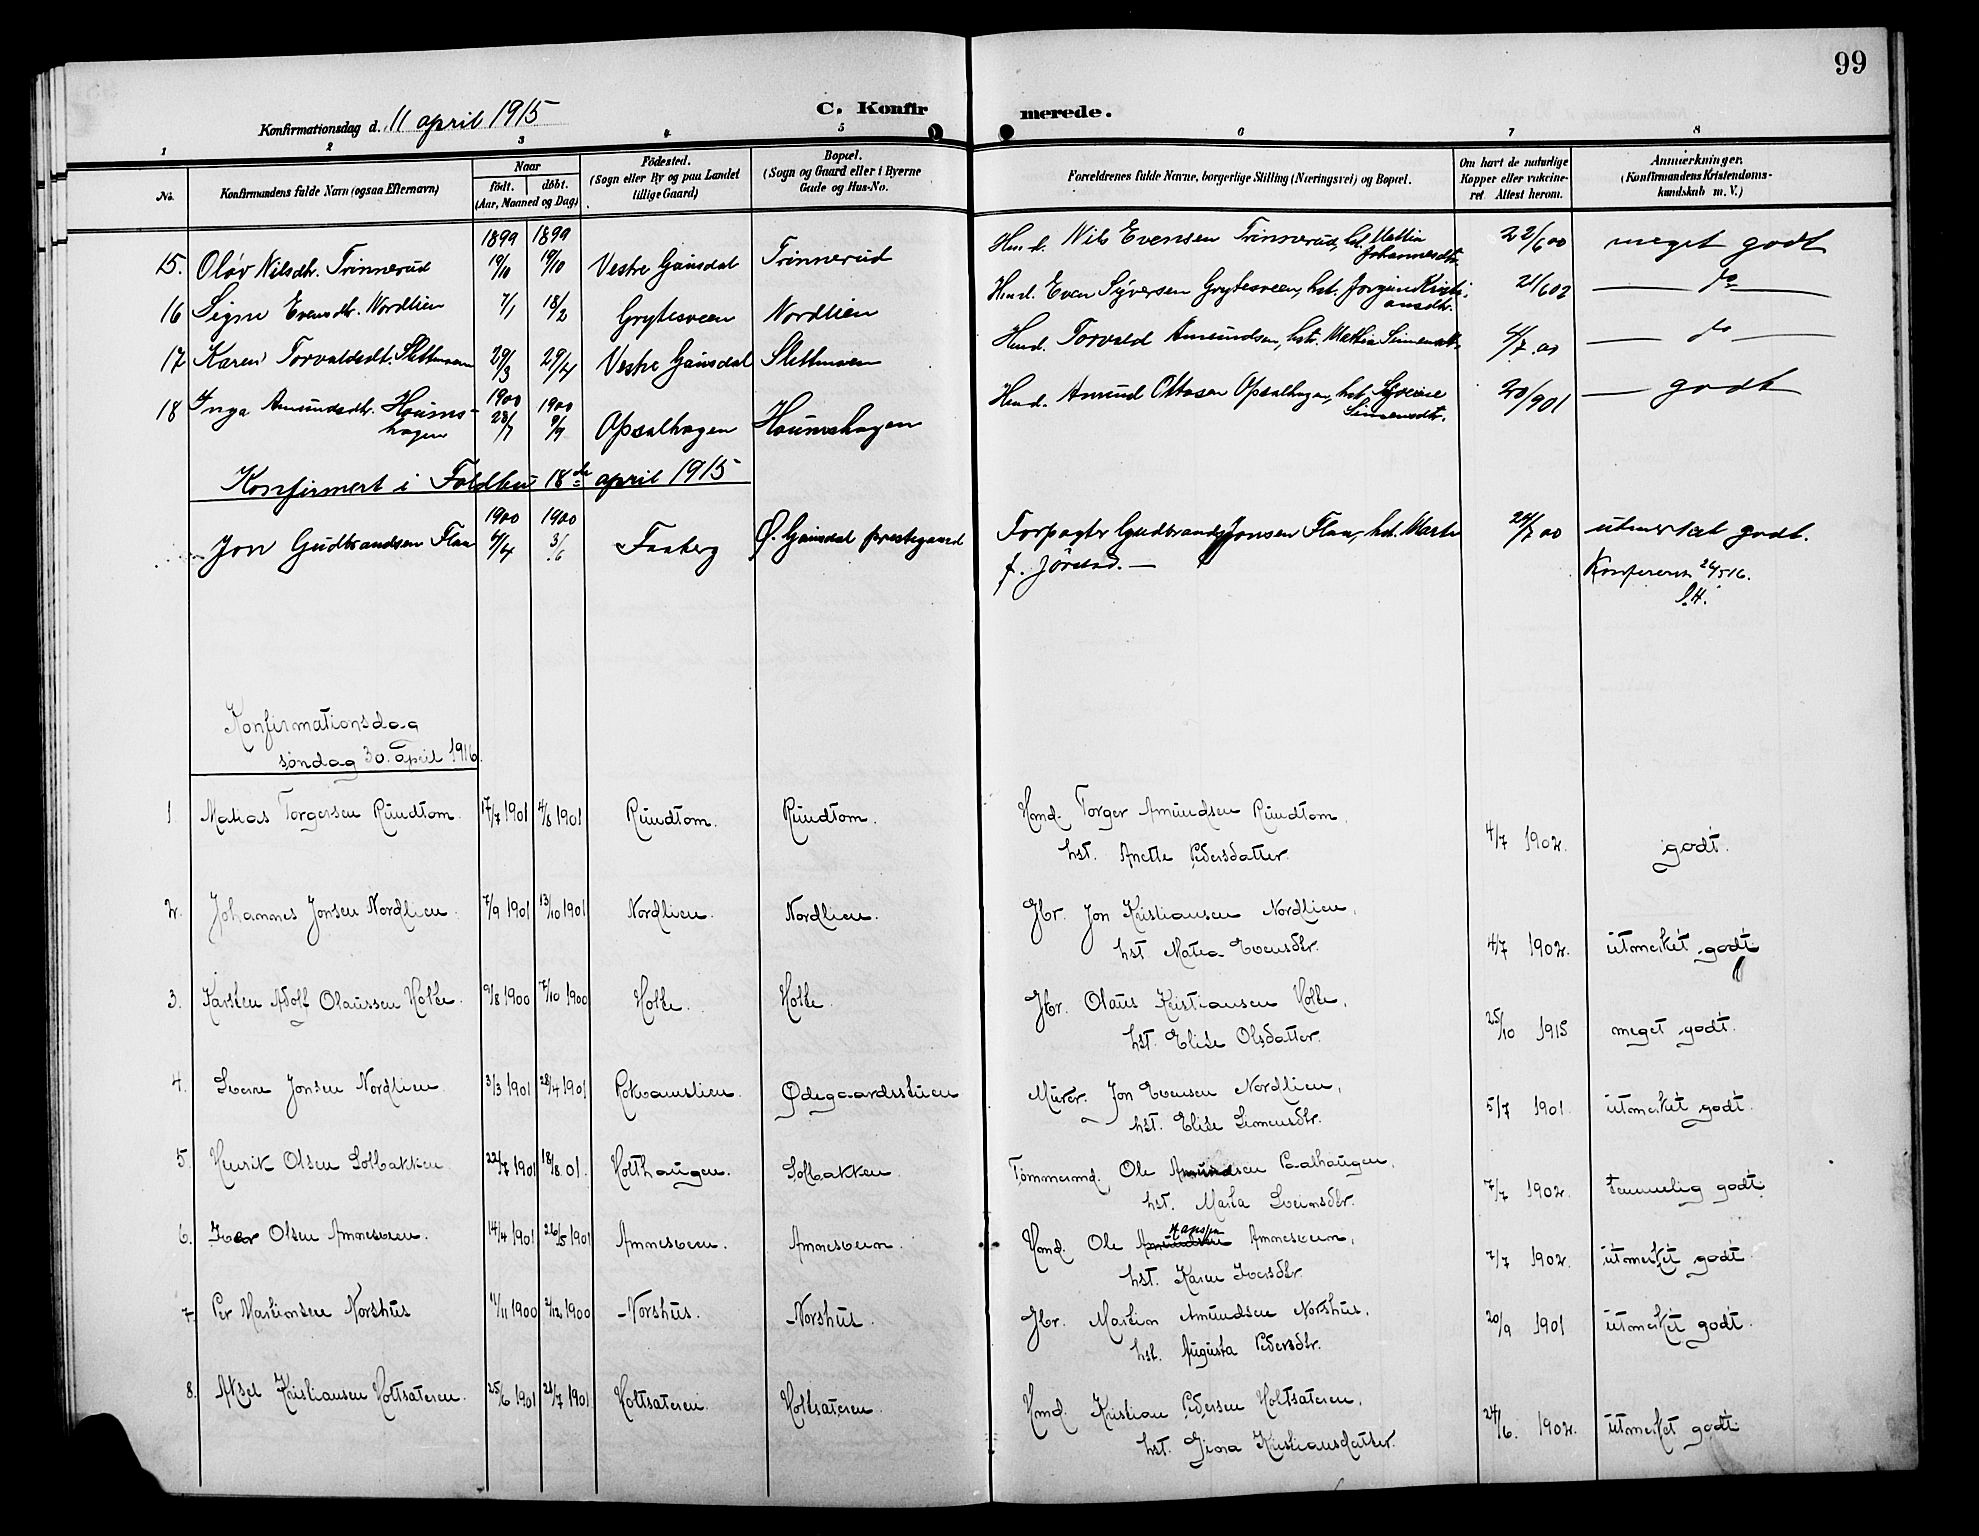 99
C. Konfirmerede.
Konfirmationsdag d. 11 april 1915
1 2 3 4 5 6 7 8
No. Konfirmandens fulde Navn (ogsaa Efternavn) Naar födt. döbt. (Aar, Maaned og Dag) Födested. (Sogn eller By og paa Landet tillige Gaard) Bopæl. (Sogn og Gaard eller i Byerne Gade og Hus-No. Forældrenes fulde Navne, borgerlige Stilling (Næringsvei) og Bopæl. Om havt de naturlige Kopper eller vakcineret. Attest herom. Anmærkninger. (Konfirmandens Kristendomskundskab m. V.)
15. Oløv Nilsdtr. Trinnerud 1899 19/10 1899 19/10 Vestre Gausdal Trinnerud Hmd. Nils Evensen Trinnerud, hst. Mathia Johannesdtr. 22/6 00 meget godt
16 Signe Evensdtr. Nordlien 7/1 18/2 Grytesveen Nordlien Hmd. Even Syversen Grytesveen, hst. Jørgine Kristiansdtr. 21/6 02 — do —
17 Karen Torvaldsdt. Slettmoen 29/3 29/4 Vestre Gausdal Slettmoen Hmd. Torvald Amundsen, hst. Mathia Simensdtr. 4/7 00 — do —
18 Inga Amundsdtr. Houmshagen 1900 28/7 1900 9/9 Opsalhagen Houmshagen Hmd. Amund Ottosen Opsalhagen, hst. Simensdtr. 20/9 01 — godt
Konfirmert i Foldbu 18de april 1915
Jon Gudbrandsen Flaa 1900 4/4 1900 3/6 Faaberg Ø. Gausdal prestegaard Forpagter Gudbrand Jonsen Flaa, hst. Marte 24/7 00 utmerket godt.
f. Jørstad. — Konfereret 26/5 16.
S.H.
Konfirmationsdag
søndag 30. april 1916.
1 Matias Torgersen Rundtom. 17/7 1901 4/8 1901 Rundtom. Rundtom. Hmd. Torger Amundsen Rundtom,
hst. Anette Pedersdatter. 4/7 1902. godt.
2. Johannes Jonsen Nordlien. 7/9 1901 13/10 1901 Nordlien. Nordlien. Gbr. Jon Kristiansen Nordlien,
hst. Matea Evensdtr. 4/7 1902. utmerket godt.
3. Karsten Adolf Olaussen Holte. 9/8 1900 7/10 1900 Holte. Holte. Gbr. Olaus Kristiansen Holte,
hst. Elise Olsdatter. 25/10 1915 meget godt.
4. Sverre Jonsen Nordlien. 3/3 1901 28/4 1901 Rotvamslien. Ødegaardsstuen Murer Jon Evensen Nordlien,
hst. Elise Simensdtr. 5/7 1901. utmerket godt.
5. Henrik Olsen Solbakken. 22/7 1901 18/8 01. Holthaugen. Solbakken. Tømmermd. Ole Amundsen Paalhaugen,
hst. Marta Sveinsdtr. 7/7 1902. temmelig godt.
6. Iver Olsen Amnesveen. 14/4 1901 26/5 1901 Amnesveen. Amnesveen. Hmd. Ole Amundsen Hanssen Amnesveen,
hst. Karen Iversdtr. 7/7 1902. utmerket godt.
7. Per Martinsen Norshus 11/11 1900 2/12 1900 Norshus. Norshus. Gbr. Martin Amundsen Norshus,
hst. Augusta Pedersdtr. 20/9 1901 utmerket godt.
8. Aksel Kristiansen Holtsæteren. 25/6 1901 21/7 1901 Holtsæteren. Holtsæteren. Hmd. Kristian Pedersen Holtsæteren,
hst. Gina Kristiansdatter. 24/6. 1902. utmerket godt.